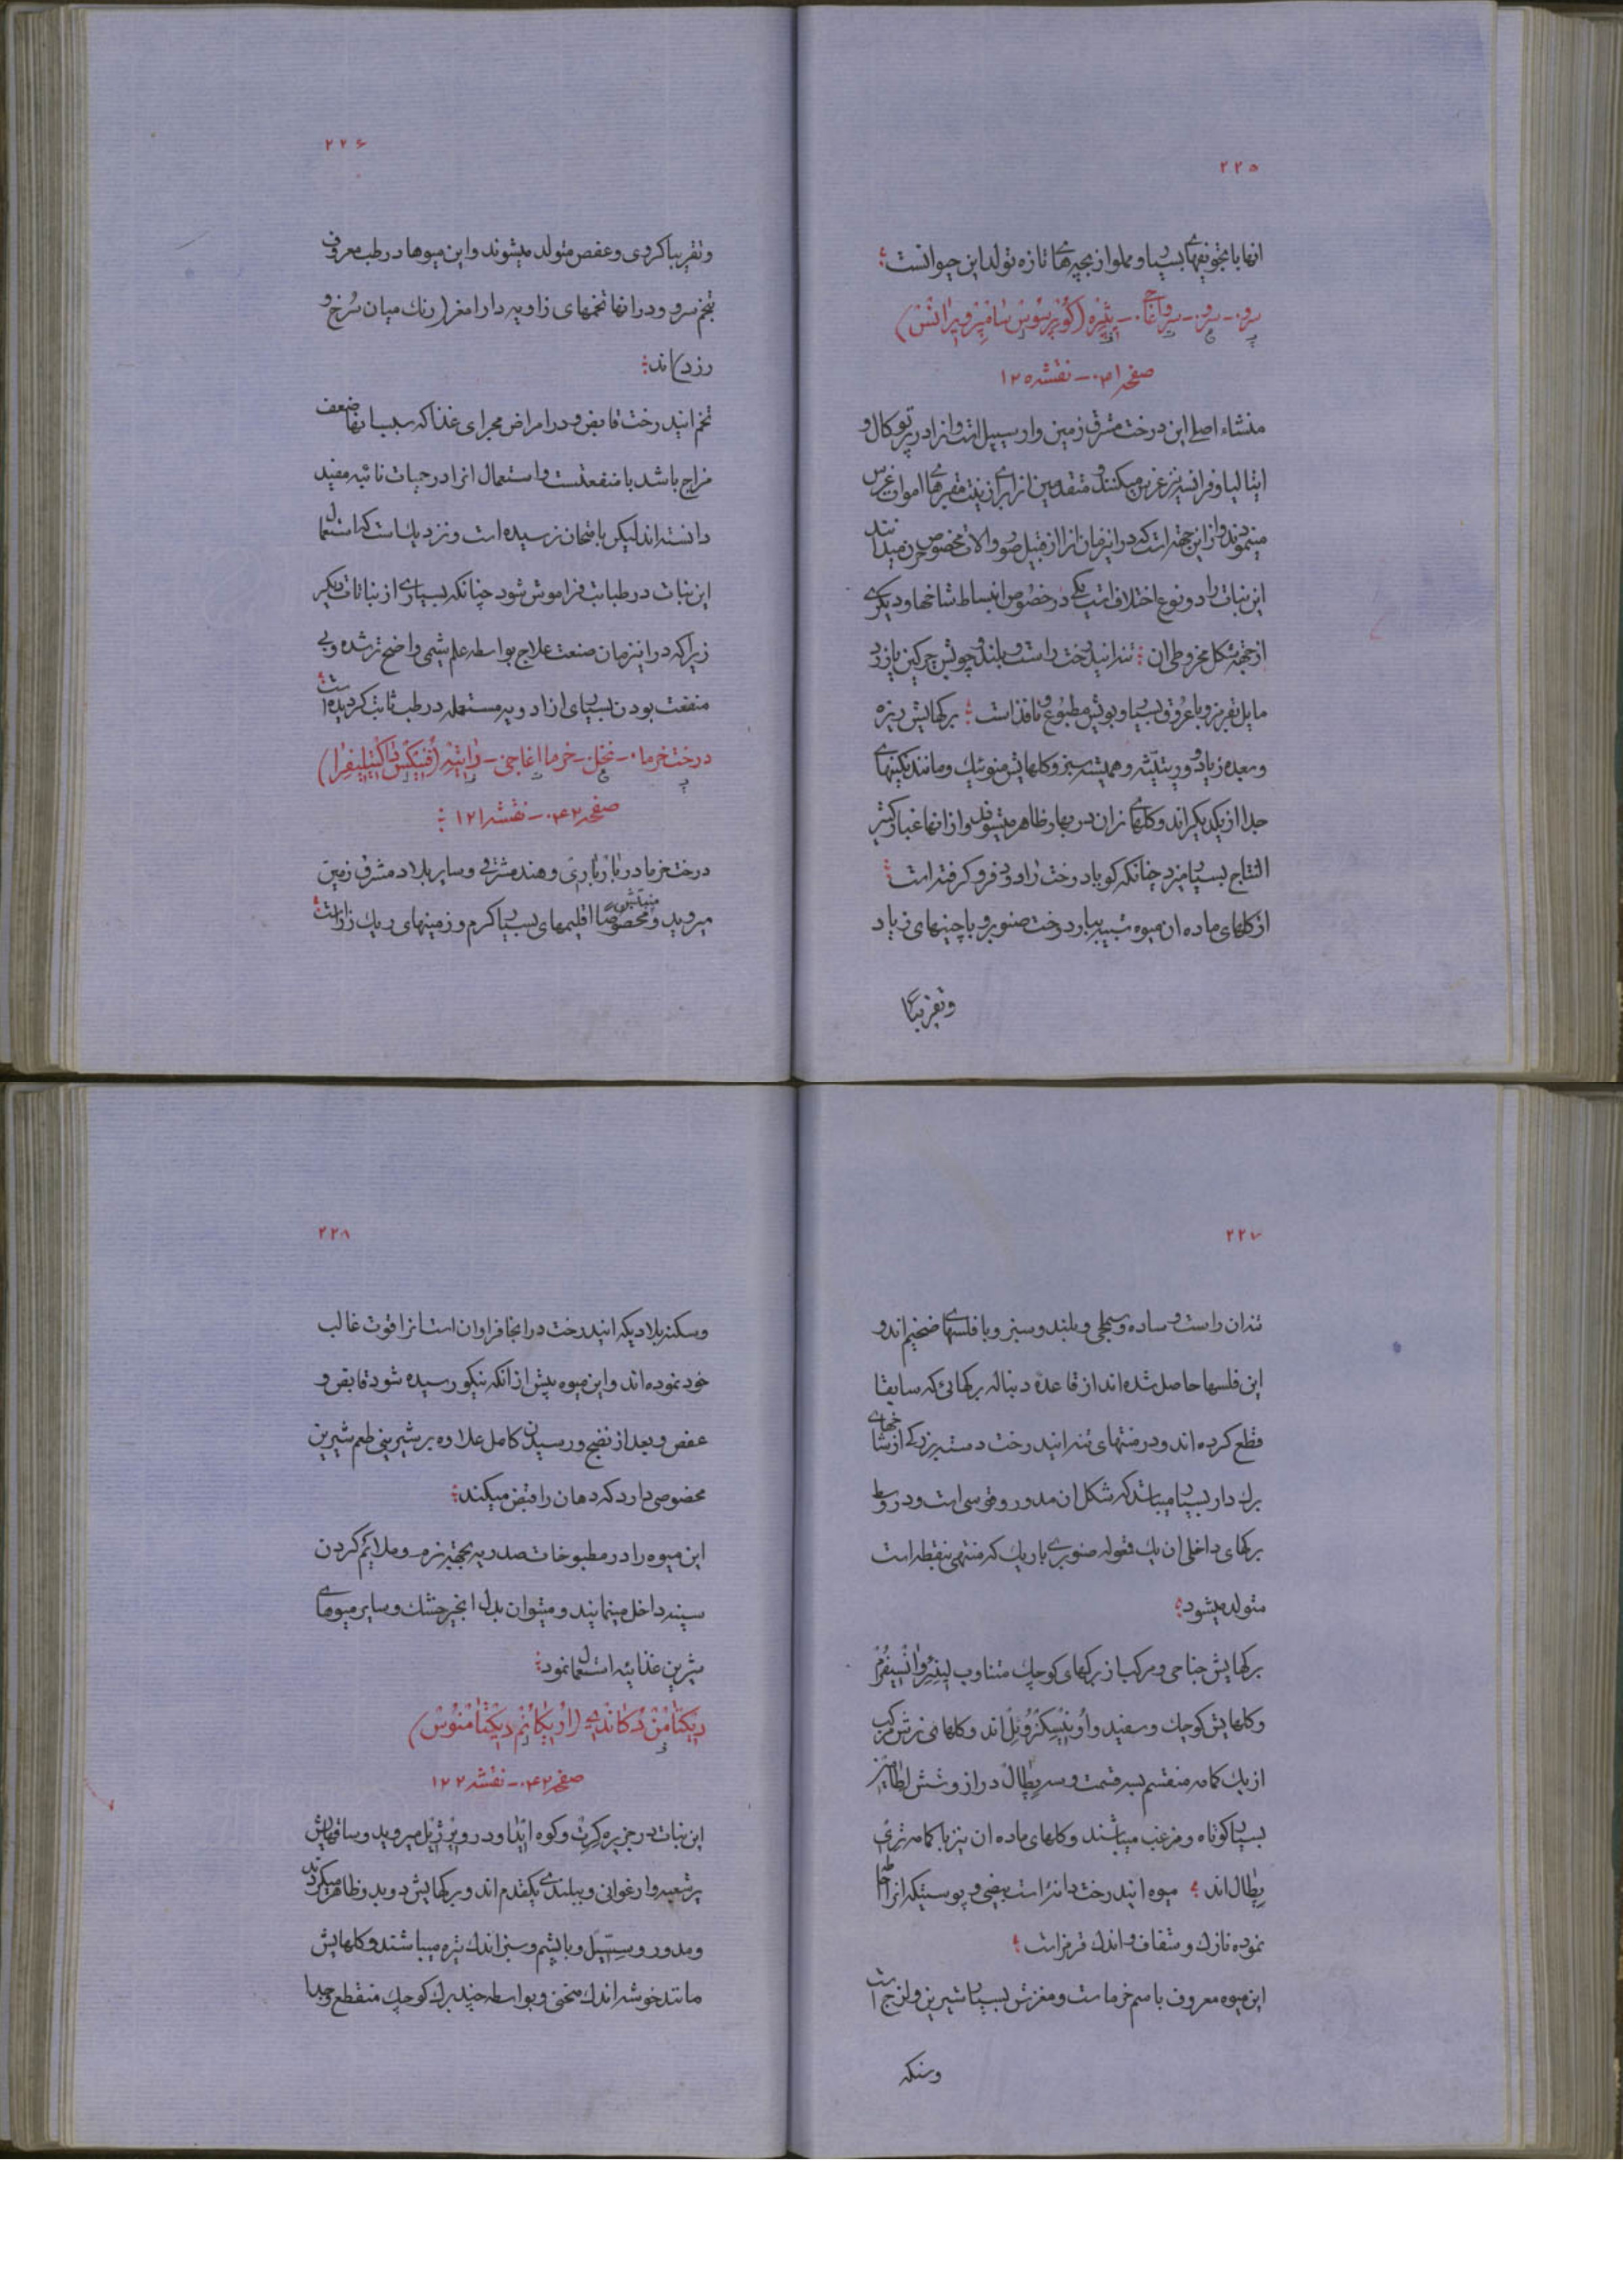 ۲۲۵
انها با تجویفهای بسیار و مملو از بچه‌های تازه تولد این حیوانست
سرو - سرو - سرو اغاجی - (کوپرسوس سامپرویرانس)
صفحه ۴۱ - نقشه ۱۲۵
منشاء اصلی این درخت مشرق زمین و ار سیسیل است و انرا در پرتوکال و
ایتالیا و فرانسه نیز غرس میکنند و متقدمین انرا برای زینت مقبرهای اموات غرس
مینمودند و از این جهة است که در این زمان انرا از قبیل صور و الات مخصوص حزن میدانند
این نبات را دو نوع اختلاف است یکی در خصوص انبساط شاخها و دیگری
از جهة شکل مخروطی ان تنه انیدرخت راست و بلند و چوبش چرکین یا زرد
مایل بقرمز و با عروق بسیار و بویش مطبوع و نافذ است برکهایش ریزه
و بعده زیاد و و همیشه سبز و کلهایش منوئیك و مانند نکینهای
جدا از یکدیکراند و کلهای نران در بهار ظاهر میشوند و از انها غبار کثیر
النتاج بسیار میریزد چنانکه کویا درخت را دود فرو کرفته است
از کلهای ماده ان میوه شبیه ببار درخت صنوبر و با چینهای زیاد
و تقریبا
۲۲۶
و تقریبا کروی و عفص متولد میشوند و این میوها در طب معروف
بتخم سرو و در انها تخمهای زاویه دار امغر (رنك میان سرخ و
زرد) اند
تخم انیدرخت قابض و در امراض مجرای غذا که بسبب انها ضعف
مزاج باشد با منفعتست و استعمال انرا در حمیات نائبه مفید
دانسته‌اند لیکن بامتحان نرسیده است و نزدیك است که استعمال
این نبات در طبابت فراموش شود چنانکه بسیاری از نباتات دیکر
زیرا که در این زمان صنعت علاج بواسطه علم شیمی واضح تر شده و بی
منفعت بودن بسیاری از ادویه مستعمله در طب ثابت کردیده است
درخت خرما - نخل - خرما اغاجی - داتیه (فنیکس داکتیلیفرا)
صفحه ۴۲ - نقشه ۱۲۱
درخت خرما در بارباری و هند مشرقی و سایر بلاد مشرق زمین
میروید و منبتش مخصوصا اقلیمهای بسیار کرم و زمینهای ریك زار است
۲۲۷
تنه ان راست و ساده و سجلی و بلند و سبز و با فلسهای ضخیم‌اند و
این فلسها حاصل شده‌اند از قاعده دنباله برکهائی که سابقا
قطع کرده‌اند و در منتهای تنه انیدرخت دسته بزرکی از شاخهای
برك دار بسیار میباشد که شکل ان مدور و قوسی است و در وسط
برکهای داخلی ان یك صنوبری باریك که منتهی بنقطه است
متولد میشود
برکهایش جناحی و مرکب از برکهای کوچك متناوب
و کلهایش کوچك و سفید و اند و کلهای نرش مرکب
از یك کاسه منقسم بسه قسمت و سه پطال دراز و شش
بسیار کوتاه و مزغب میباشند و کلهای ماده ان نیز با کاسه تری
پطال‌اند میوه انیدرخت دانه‌ایست بیضی و پوستیکه انرا احاطه
نموده نازك و شفاف و اندك قرمز است
این میوه معروف باسم خرماست و مغزش بسیار شیرین و لزج است
و سکنه
۲۲۸
و سکنه بلادیکه انیدرخت در انجا فراوان است انرا قوت غالب
خود نموده‌اند و این میوه پیش از انکه نیکو رسیده شود قابض و
عفص و بعد از نضج و رسیدن کامل علاوه بر شیرینی طعم شیرین
مخصوصی دارد که دهان را قبض میکند
این میوه را در مطبوخات صدریه بجهة نرم و ملایم کردن
سینه داخل مینمایند و میتوان بدل انجیر خشك و سایر میوهای
شیرین غذائیه استعمال نمود
دیکتامن دکاندی (اوریکانم دیکتامنوس)
صفحه ۴۲ - نقشه ۱۲۲
این نبات در جزیره کرت و کوه ایدا و در میروید و ساقهایش
پر شعبه و ارغوانی و ببلندی یکقدم‌اند و برکهایش دو بدو ظاهر میکردند
و مدور و سسیل و با پشم و سبز اندك تیره میباشند و کلهایش
مانند خوشه اندك منحنی و بواسطه چند برك کوچك منقطع و جدا